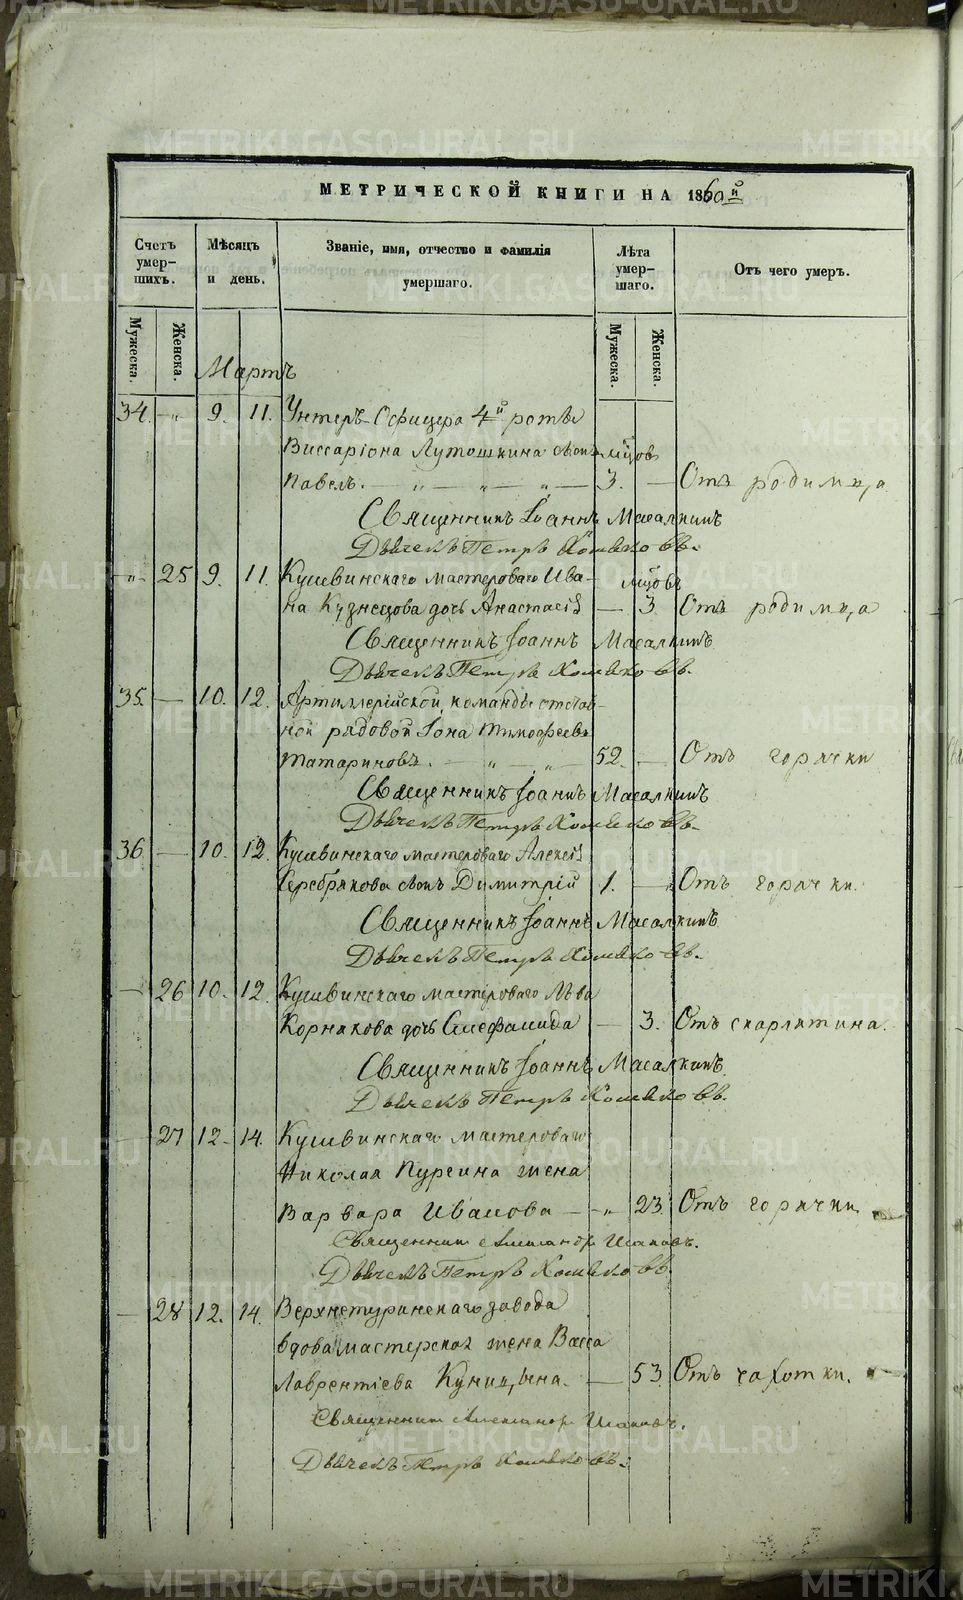 МЕТРИЧЕСКОЙ КНИГИ НА 1860й
Счетъ умер-шихъ.
Мѣсяцъ и день.
Званіе, имя, отчество и фамилія умершаго.
Лѣта умер-шаго.
Отъ чего умеръ.
Мужеска. Женска.
Мужеска. Женска.
Мартъ
34. „ 9. 11. Унтеръ-Офицера 4й роты
Виссаріона Лутошкина сынъ мцов
Павелъ. — „ — „ — „ — 3. — Отъ родимца
Священникъ Іоаннъ Масалкинъ
Дьячекъ Петръ Хомяковъ.
„ 25 9. 11. Кушвинскаго мастероваго Ива- мцовъ
на Кузнецова дочь Анастасія — 3. Отъ родимца
Священникъ Іоаннъ Масалкинъ
Дьячекъ Петръ Хомяковъ.
35. — 10. 12. Артиллерійской команды отстав-
ной рядовой Іона Тимофеевъ
Татариновъ. — „ — „ — 52. — Отъ горячки
Священникъ Іоаннъ Масалкинъ
Дьячекъ Петръ Хомяковъ.
36 — 10. 12. Кушвинскаго мастероваго Алексія
Серебрякова сынъ Димитрій 1. — Отъ горячки.
Священникъ Іоаннъ Масалкинъ
Дьячекъ Петръ Хомяковъ.
— 26 10. 12. Кушвинскаго мастероваго Льва
Корнякова дочь — 3. Отъ скарлятина.
Священникъ Іоаннъ Масалкинъ
Дьячекъ Петръ Хомяковъ.
— 27 12. 14. Кушвинскаго мастероваго
Николая Пургина жена
Варвара Иванова — „ 23 Отъ горячки
Священник Александр
Дьячекъ Петръ Хомяковъ
— 28 12. 14. Верхнетуринскаго завода
вдова мастерская жена Васса
Лаврентіева Куницына. — 53 Отъ чахотки.
Священник Александр
Дьячекъ Петръ Хомяковъ.
METRIKI.GASO-URAL.RU